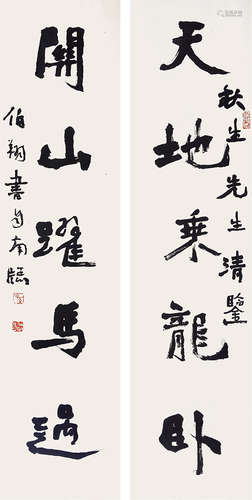 天地乘龍卧
秋生先生清鑒
關山躍馬過
伯翔書南